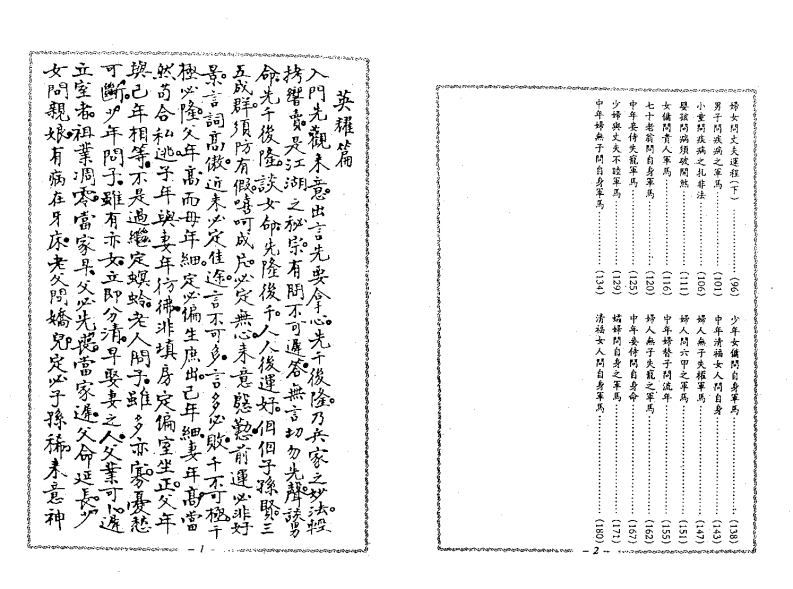 婦女問丈夫運程(下)……(96)
男子問疾病之軍馬……(101)
小童問疾病之扎非法……(106)
嬰孩問病須破關煞……(111)
女傭問貴人軍馬……(116)
七十老翁問自身軍馬……(120)
中年妾侍失寵軍馬……(125)
少婦與丈夫不睦軍馬……(129)
中年婦無子問自身軍馬……(134)
少年女傭問自身軍馬……(138)
中年清福女人問自身……(143)
婦人無子失權軍馬……(147)
婦人問六甲之軍馬……(151)
中年婦替子問流年……(155)
婦人無子失寵之軍馬……(162)
中年妾侍問自身命……(167)
孀婦問自身之軍馬……(171)
清福女人問自身軍馬……(180)
– 2 –
英耀篇
入門先觀來意。出言先要拿心。先千後隆。乃兵家之妙法。輕
拷響賣。是江湖之秘宗。有問不可遲答。無言切勿先聲。談男
命先千後隆。談女命先隆後千。人人後運好。個個子孫賢。三
五成群須防有假。嘻呵成片必定無心。來意慇懃。前運必非好
景。言詞高傲。近來必定佳途。言不可多。言多必敗。千不可極。千
極必隆。父年高而母年細。定必偏生庶出。己年細。妻年高。當
然苟合私逃。子年與妻年彷彿。非填房定偏室坐正。父年
與己年相等。不是過繼定螟蛉。老人問子。雖多亦寡。憂愁
可斷。少年問子。雖有亦女。立即分清。早娶妻之人。父業可。遲
立室者。祖業凋零。當家早。父必先喪。當家遲。父命延長。少
女問親娘。有病在牙床。老父問嬌兒。定必子孫稀。來意神
– 1 –